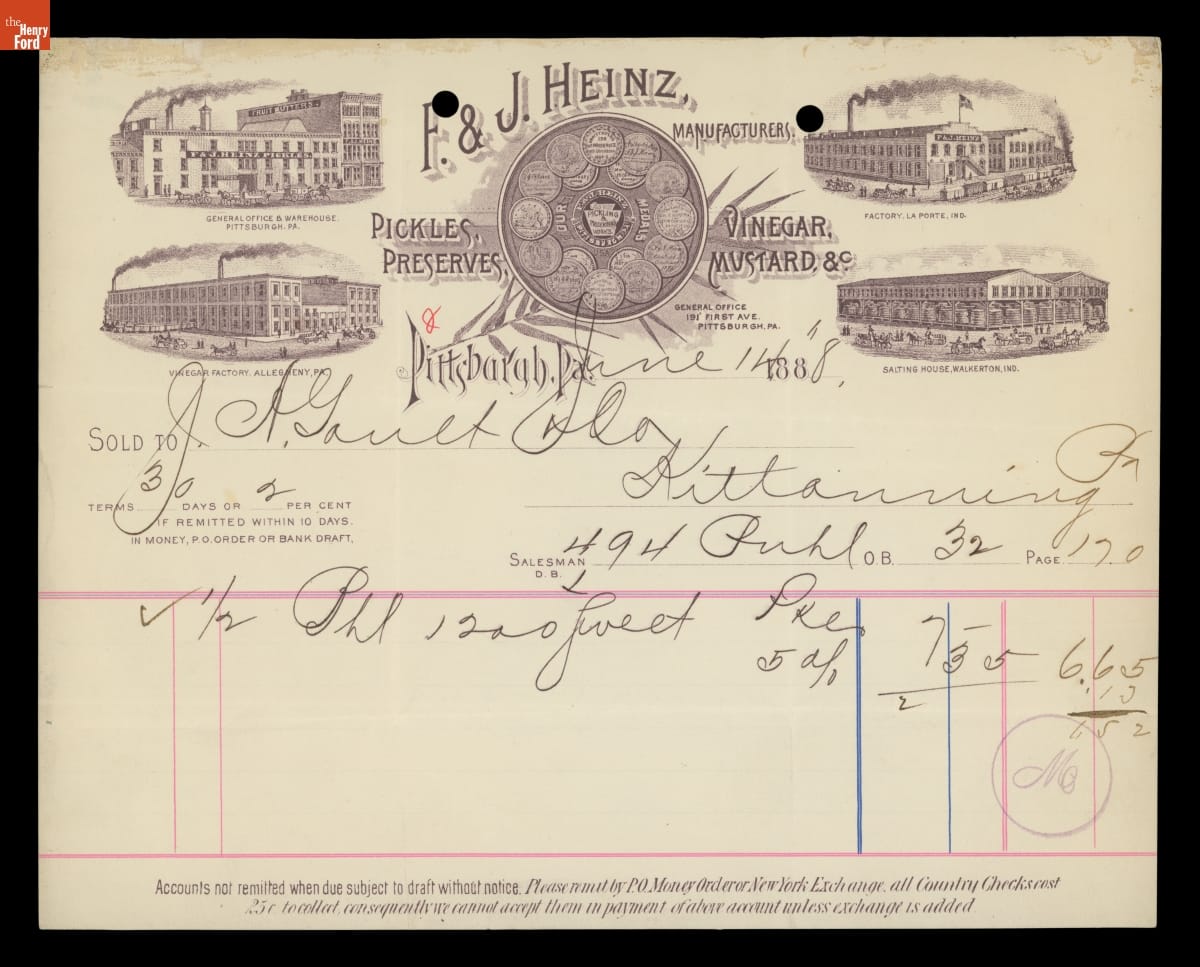 the Henry Ford
F. & J. HEINZ,
MANUFACTURERS.
FRUIT BUTTERS.
F. & J. HEINZ PICKLES
GENERAL OFFICE & WAREHOUSE.
PITTSBURGH. PA.
F. & J. HEINZ
FACTORY, LA PORTE, IND.
OUR MEDALS
PICKLING & PRESERVING WORKS.
PICKLES,
PRESERVES,
VINEGAR,
MUSTARD, &c
GENERAL OFFICE
191 FIRST AVE.
PITTSBURGH, PA.
VINEGAR FACTORY. ALLEGHENY, PA.
SALTING HOUSE, WALKERTON, IND.
Pittsburgh, Pa. June 14 1888,
SOLD TO J. A. Gault & Co
Kittanning Pa
TERMS 30 DAYS OR 2 PER CENT
IF REMITTED WITHIN 10 DAYS.
IN MONEY, P.O. ORDER OR BANK DRAFT,
SALESMAN 494 Buhl O.B. 32 PAGE 170
D.B. 1
1/2 Bbl 1200 Sweet Pke 7
5 % 35 6.65
2 .13
6 52
Accounts not remitted when due subject to draft without notice. Please remit by P.O. Money Order or New York Exchange, all Country Checks cost
25c to collect, consequently we cannot accept them in payment of above account unless exchange is added